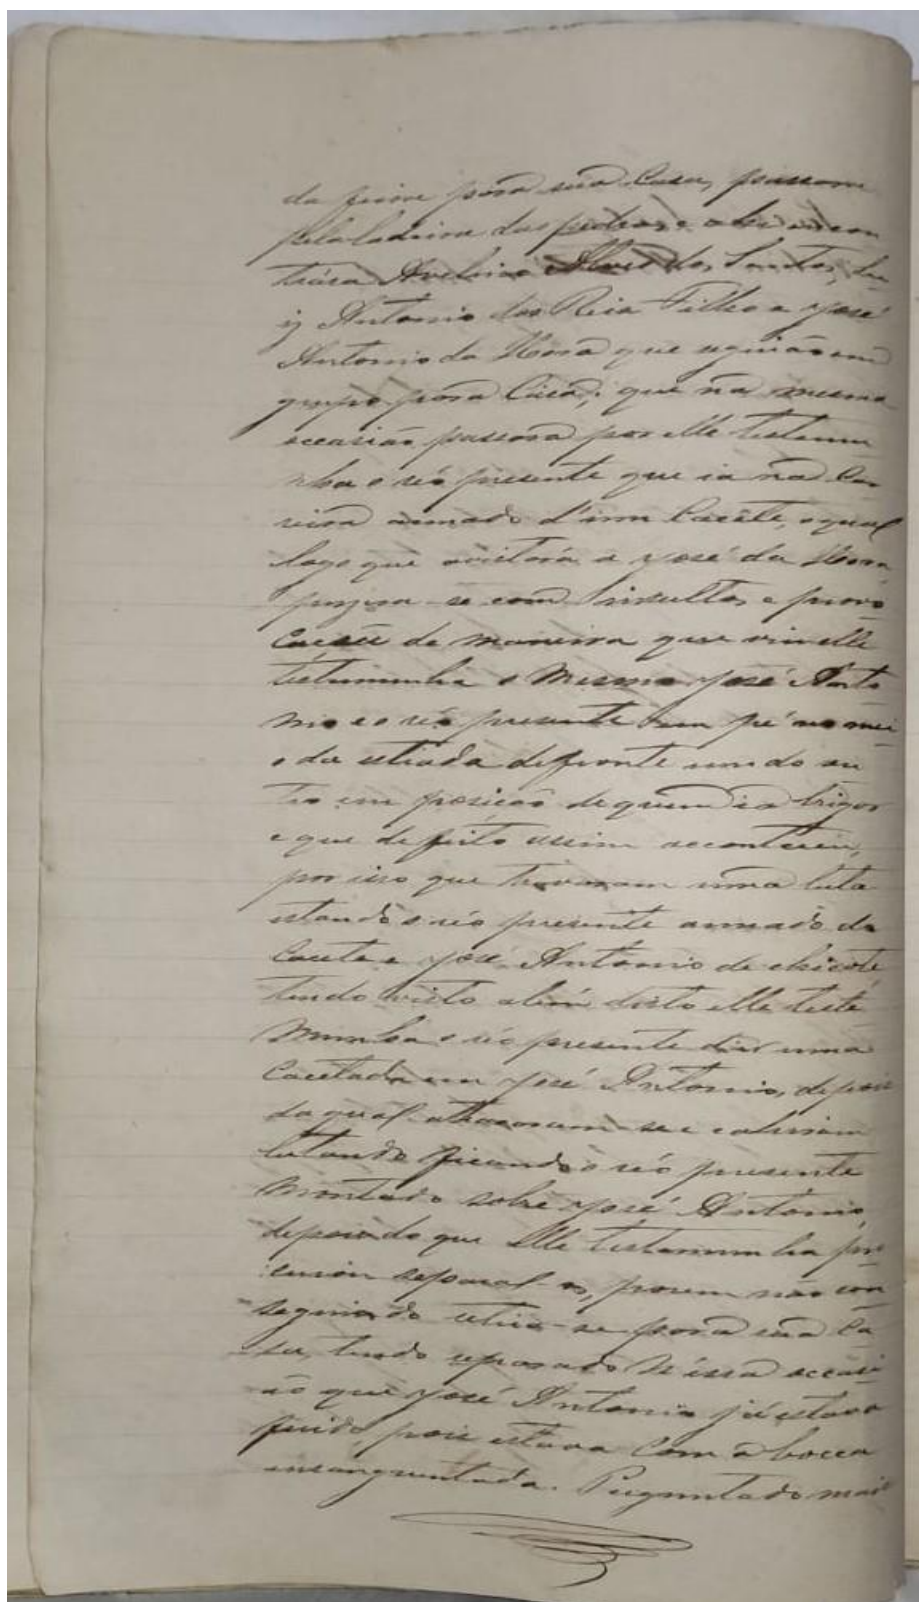 da feira para sua Casa, passara
pela ladeira das pedras, e ahi encon
trára Avelino Alves dos Santos, Lu-
iz Antonio dos Reis Filho e José
Antonio da Hora que seguião em
grupo para Casa; que na mesma
occasião passara por elle testemu
nha o réo presente que ia na Car
reira armado d'um Cacête, o qual
logo que avistára a José da Hora
puzera-se com insultos e provo
cação de maneira que vio elle
testemunha o mesmo José Anto
nio e o réo presente em pé no mei-
o da estrada defronte um do ou
tro em posição de quem ia brigar
e que de feito assim aconteceu,
por isso que travaram uma luta
estando o réo presente armado de
Cacete e José Antonio de chicote,
tendo visto alem disto elle teste-
munha o réo presente dar uma
Cacetada em José Antonio, depois
da qual atracaram-se e cahiram
lutando ficando o réo presente
montado sobre José Antonio,
depois do que elle testemunha pro
curou separal-os, porem não con-
seguindo retira-se para sua Ca-
sa, tendo reparado n'essa occasi-
ão que José Antonio já estava
ferido, pois estava com a bocca
ensanguentada. Perguntado mais